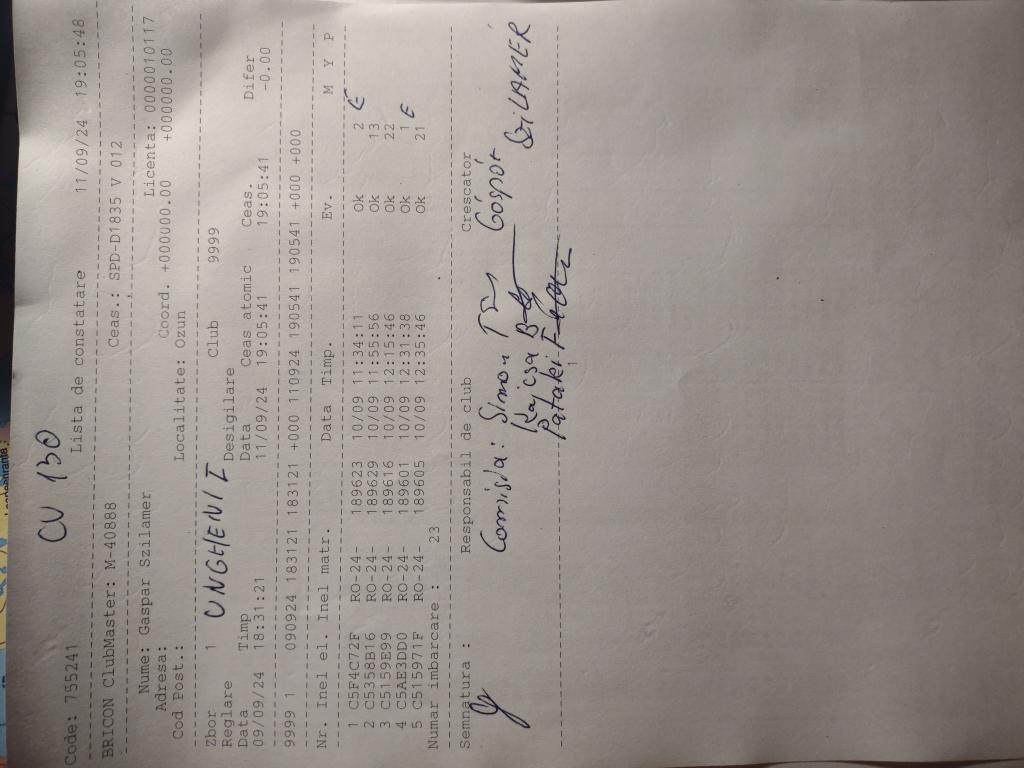 CU 130
Code: 755241 Lista de constatare 11/09/24 19:05:48
BRICON ClubMaster: M-40888 Ceas.: SPD-D1835 V 012
Nume: Gaspar Szilamer Licenta: 0000010117
Adresa: Coord. +000000.00 +000000.00
Cod Post.: Localitate: Ozun
Zbor 1 UNGHENI I Club 9999
Reglare Desigilare
Data Timp Data Ceas atomic Ceas. Difer
09/09/24 18:31:21 11/09/24 19:05:41 19:05:41 -0.00
9999 1 090924 183121 183121 +000 110924 190541 190541 +000 +000
Nr. Inel el. Inel matr. Data Timp. Ev. M Y P
1 C5F4C72F RO-24- 189623 10/09 11:34:11 Ok 2 E
2 C5358B16 RO-24- 189629 10/09 11:55:56 Ok 13
3 C5159E99 RO-24- 189616 10/09 12:15:46 Ok 22
4 C5AE3DD0 RO-24- 189601 10/09 12:31:38 Ok 1 E
5 C515971F RO-24- 189605 10/09 12:35:46 Ok 21
Numar imbarcare : 23
Semnatura : Responsabil de club Crescator
Comisia: Simon Gáspár
SZILAMER
Kajcsa
Pataki